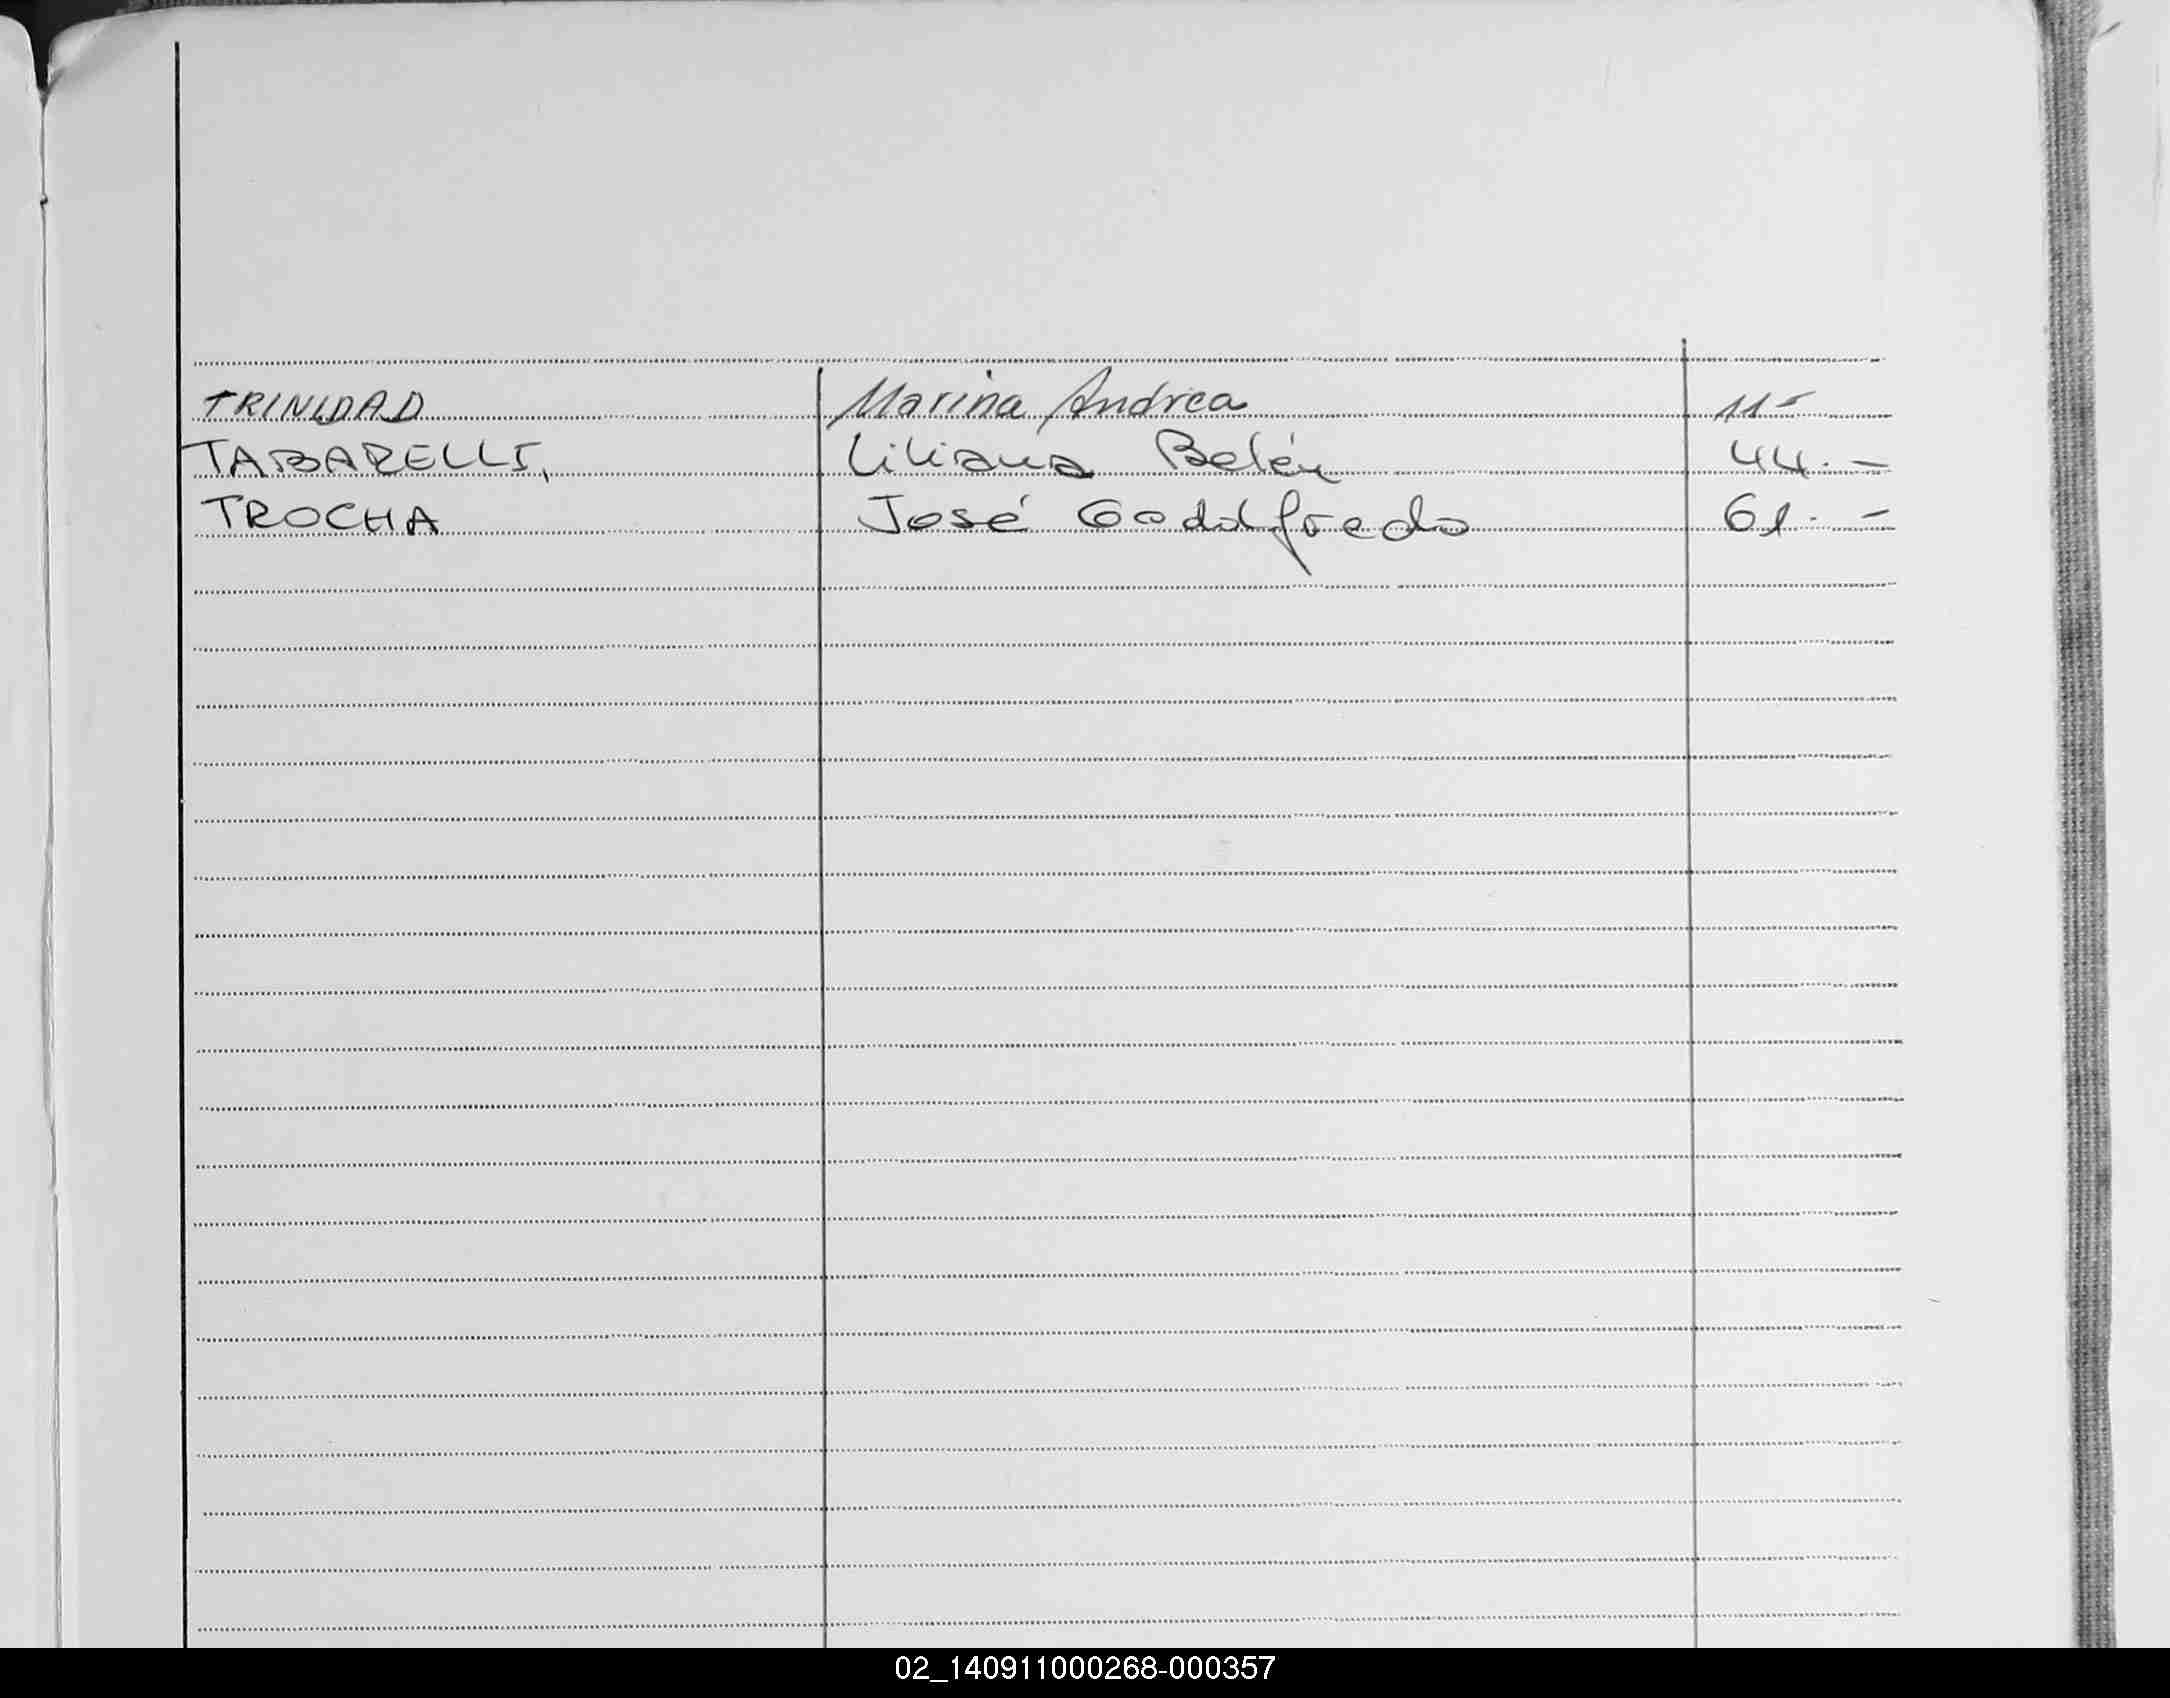 TRINIDAD Marina Andrea 11-
TABARELLI, Liliana Belén 44.-
TROCHA José Godolfredo 61.-
02_140911000268-000357